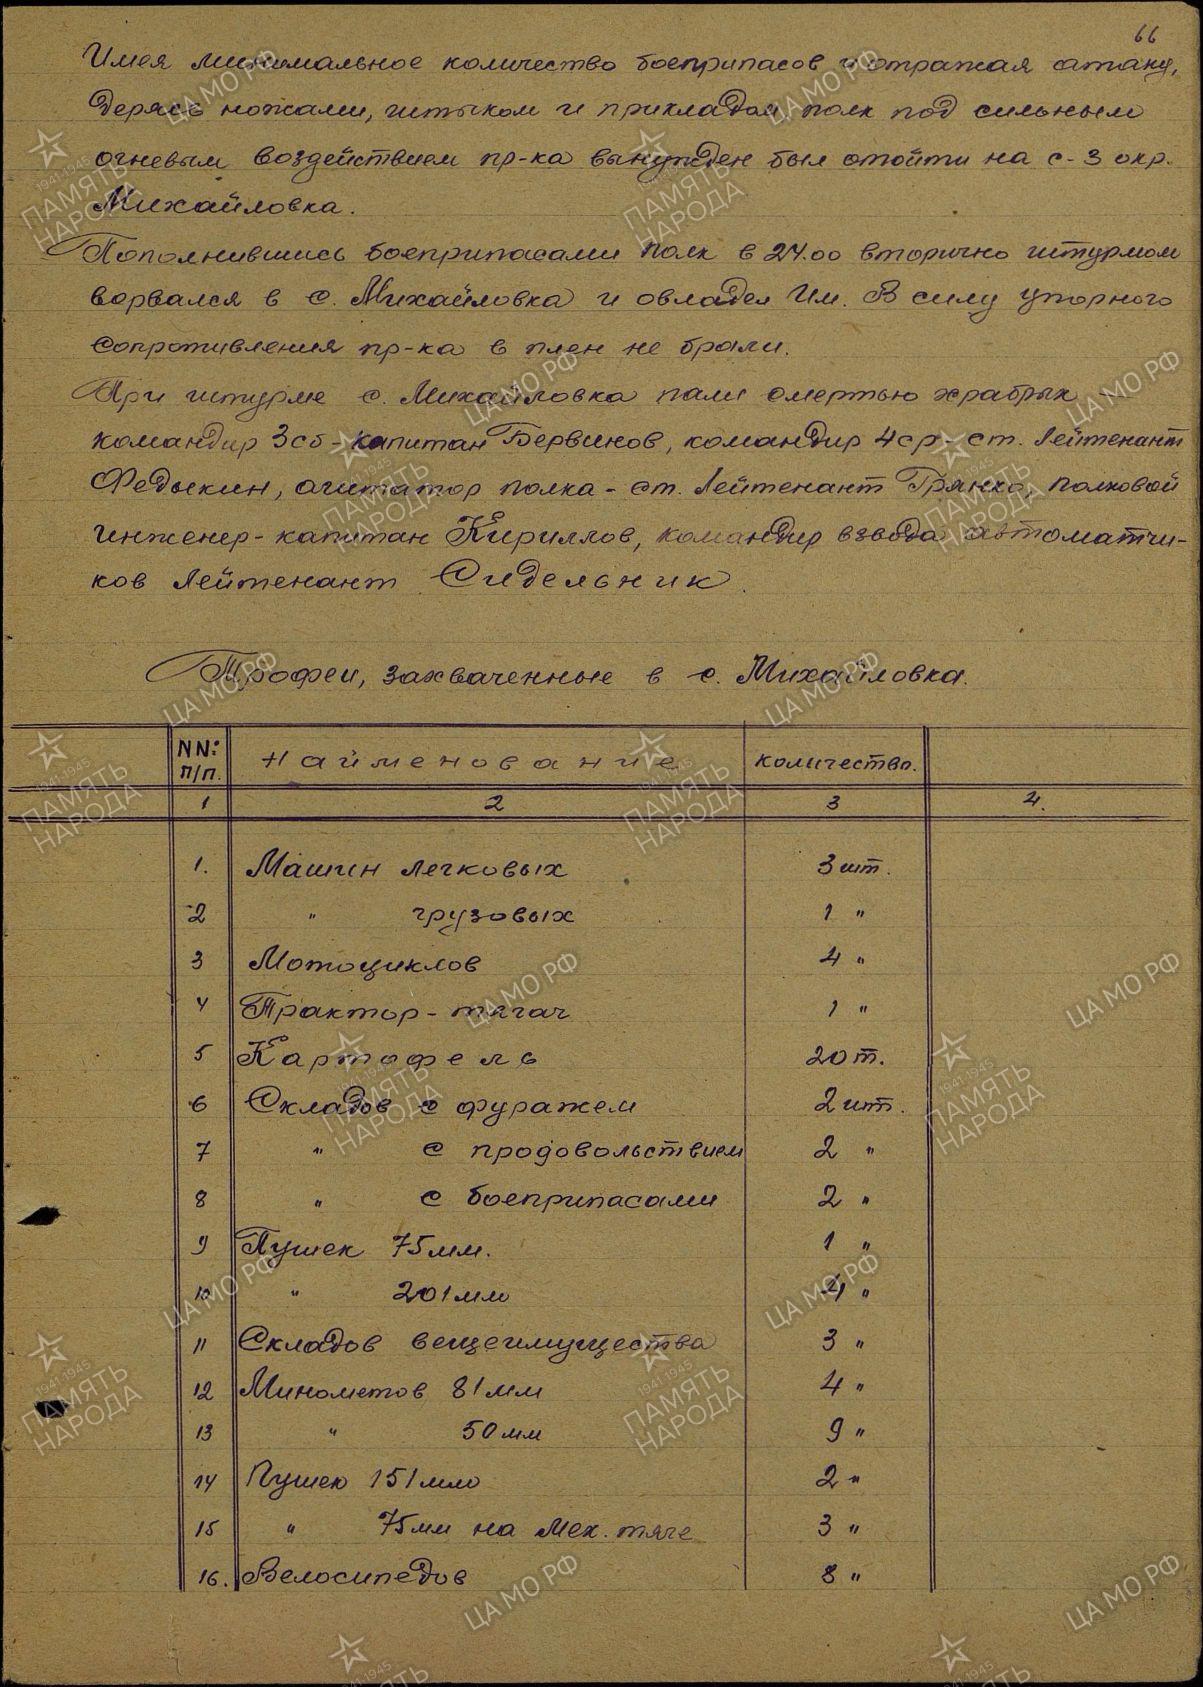 66
Имея минимальное количество боеприпасов и отражая атаку,
дерясь ножами, штыком и прикладом полк под сильным
огневым воздействием пр-ка вынужден был отойти на с-з окр.
Михайловка.
Пополнившись боеприпасами полк в 24.00 вторично штурмом
ворвался в с. Михайловка и овладел Им. В силу упорного
сопротивления пр-ка в плен не брали.
При штурме с. Михайловка пали смертью храбрых -
командир 3сб - капитан Бервинов, командир 4ср - ст. Лейтенант
Федыкин, агитатор полка - ст. Лейтенант Грянко, полковой
инженер - капитан Кириллов, командир взвода автоматчи-
ков Лейтенант Сидельник.
Трофеи, захваченные в с. Михайловка.
NN: п/п. Найменование количество.
1 2 3 4.
1. Машин легковых 3 шт.
2 " грузовых 1 "
3 Мотоциклов 4 "
4 Трактор - тягач 1 "
5 Картофель 20 т.
6 Складов с фуражем 2 шт.
7 " с продовольствием 2 "
8 " с боеприпасами 2 "
9 Пушек 75 мм. 1 "
10 " 201 мм 4 "
11 Складов вещеимущества 3 "
12 Минометов 81 мм 4 "
13 " 50 мм 9 "
14 Пушек 151 мм 2 "
15 " 75 мм на мех. тяге 3 "
16. Велосипедов 8 "
ПАМЯТЬ НАРОДА
1941-1945
ЦА МО РФ